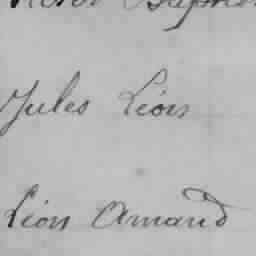 Jules Léon
Léon Amand